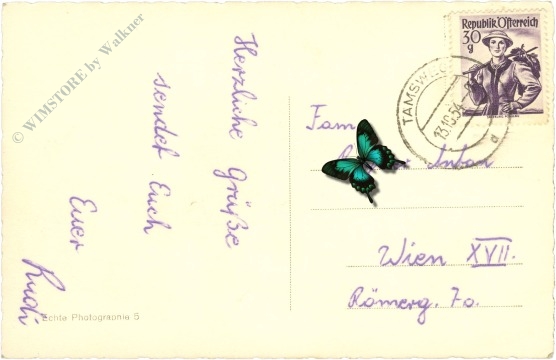 © WIMSTORE by Walkner
Herzliche Grüße
sendet Euch
Euer
Rudi
Echte Photographie 5
Republik Österreich
30
g
TAMSW
13.10.54
d
Fam
Wien XVII.
Römerg. 70.